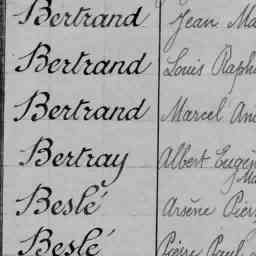 Bertrand Jean Ma
Bertrand Louis Raph
Bertrand Marcel An
Bertray Albert Eugèn
Ma
Beslé Arsène Pier
Beslé Pierre Paul